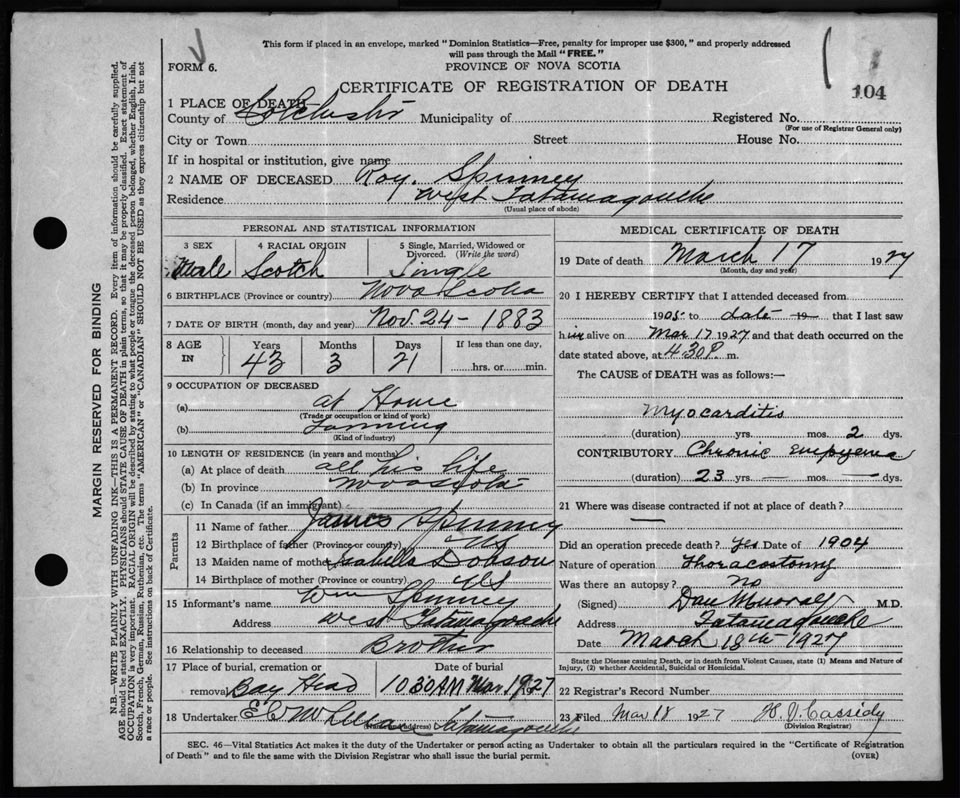 This form if placed in an envelope, marked "Dominion Statistics—Free, penalty for improper use $300," and properly addressed
will pass through the Mail "FREE."
FORM 6.
PROVINCE OF NOVA SCOTIA
CERTIFICATE OF REGISTRATION OF DEATH
104
1 PLACE OF DEATH
County of Colchester Municipality of Registered No.
(For use of Registrar General only)
City or Town Street House No.
If in hospital or institution, give name
2 NAME OF DECEASED Roy. Spinney
Residence West Tatamagouche
(Usual place of abode)
PERSONAL AND STATISTICAL INFORMATION
3 SEX 4 RACIAL ORIGIN 5 Single, Married, Widowed or
Divorced. (Write the word)
Male Scotch Single
6 BIRTHPLACE (Province or country) Nova Scotia
7 DATE OF BIRTH (month, day and year) Nov. 24 - 1883
8 AGE IN Years Months Days If less than one day,
43 3 21 hrs. or min.
9 OCCUPATION OF DECEASED
(a) at Home
(Trade or occupation or kind of work)
(b) Farming
(Kind of industry)
10 LENGTH OF RESIDENCE (in years and months)
(a) At place of death all his life
(b) In province Nova Scotia
(c) In Canada (if an immigrant)
Parents
11 Name of father James Spinney
12 Birthplace of father (Province or country) NS
13 Maiden name of mother Isabella Dobson
14 Birthplace of mother (Province or country) NS
15 Informant's name Wm Spinney
Address West Tatamagouche
16 Relationship to deceased Brother
17 Place of burial, cremation or Date of burial
removal Bay Head 10 30 AM Mar 19 1927
18 Undertaker E C McLellan (Address) Tatamagouche
MEDICAL CERTIFICATE OF DEATH
19 Date of death March 17 1927
(Month, day and year)
20 I HEREBY CERTIFY that I attended deceased from
1905 to date 19 that I last saw
him alive on Mar 17 1927 and that death occurred on the
date stated above, at 4.30 P. m.
The CAUSE of DEATH was as follows:—
Myocarditis
(duration) yrs. mos. 2 dys.
CONTRIBUTORY Chronic Empyema
(duration) 23 yrs. — mos. — dys.
21 Where was disease contracted if not at place of death?
—
Did an operation precede death? Yes Date of 1904
Nature of operation Thoracostomy
Was there an autopsy? No
(Signed) Dan Murray M.D.
Address Tatamagouche
Date March 18th 1927
State the Disease causing Death, or in death from Violent Causes, state (1) Means and Nature of
Injury, (2) whether Accidental, Suicidal or Homicidal.
22 Registrar's Record Number
23 Filed Mar 18 1927 H. J. Cassidy
(Division Registrar)
SEC. 46—Vital Statistics Act makes it the duty of the Undertaker or person acting as Undertaker to obtain all the particulars required in the "Certificate of Registration
of Death" and to file the same with the Division Registrar who shall issue the burial permit. (OVER)
MARGIN RESERVED FOR BINDING
N.B.—WRITE PLAINLY WITH UNFADING INK—THIS IS A PERMANENT RECORD. Every item of information should be carefully supplied.
AGE should be stated EXACTLY. PHYSICIANS should STATE CAUSE OF DEATH in plain terms, so that it may be properly classified. Exact statement of
OCCUPATION is very important. RACIAL ORIGIN will be described by stating to what people or tongue the deceased person belonged, whether English, Irish,
Scotch, French, German, Russian, Ruthenian, etc. The terms "AMERICAN" or "CANADIAN" SHOULD NOT BE USED as they express citizenship but not
a race or people. See instructions on back of Certificate.